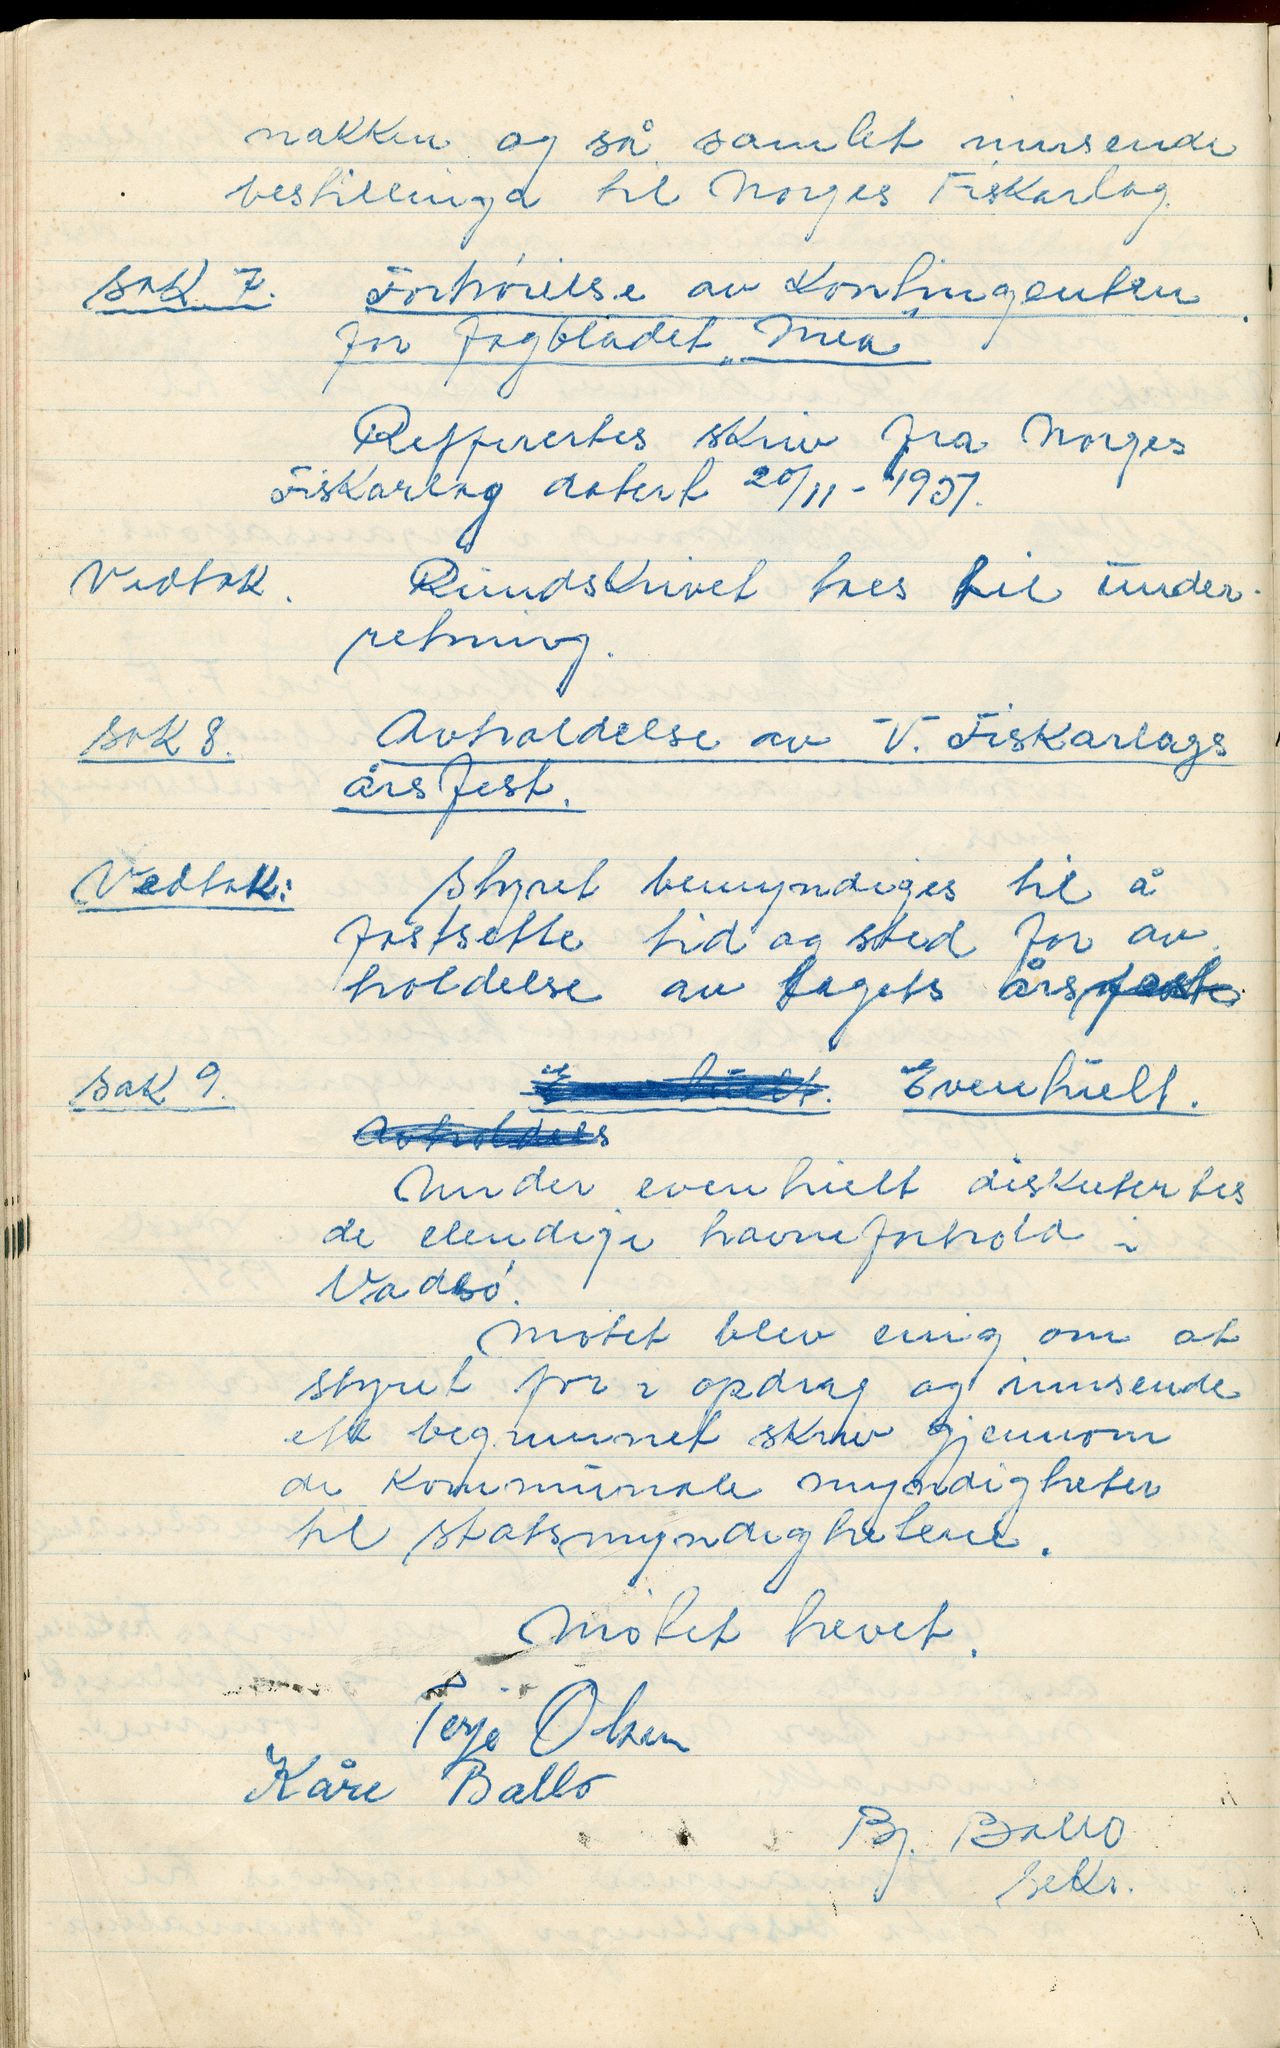 nakken og så samlet innsende
bestillinga til Norges Fiskarlag.
Sak 7. Forhöielse av Kontingenten
for fagbladet "Mea"
Reffirertes skriv fra Norges
Fiskarlag datert 20/11-1957.
Vedtak. Rundskrivet taes til under-
retning.
Sak 8. Avholdelse av V. Fiskarlags
årsfest.
Vedtak: Styret bemyndiges til å
fastsette tid og sted for av
holdelse av lagets årsfest.
Sak 9. Eventuelt. Eventuelt.
Avholdels
Under eventuelt diskutertes
de elendige havneforhold i
Vadsö.
Mötet blev enig om at
styret for i opdrag og innsende
ett begrunnet skriv gjennom
de kommunale myndigheter
til statsmyndighetene.
Mötet hevet.
Terje Olsen
Kåre Ballo
Bj. Ballo
Sekr.